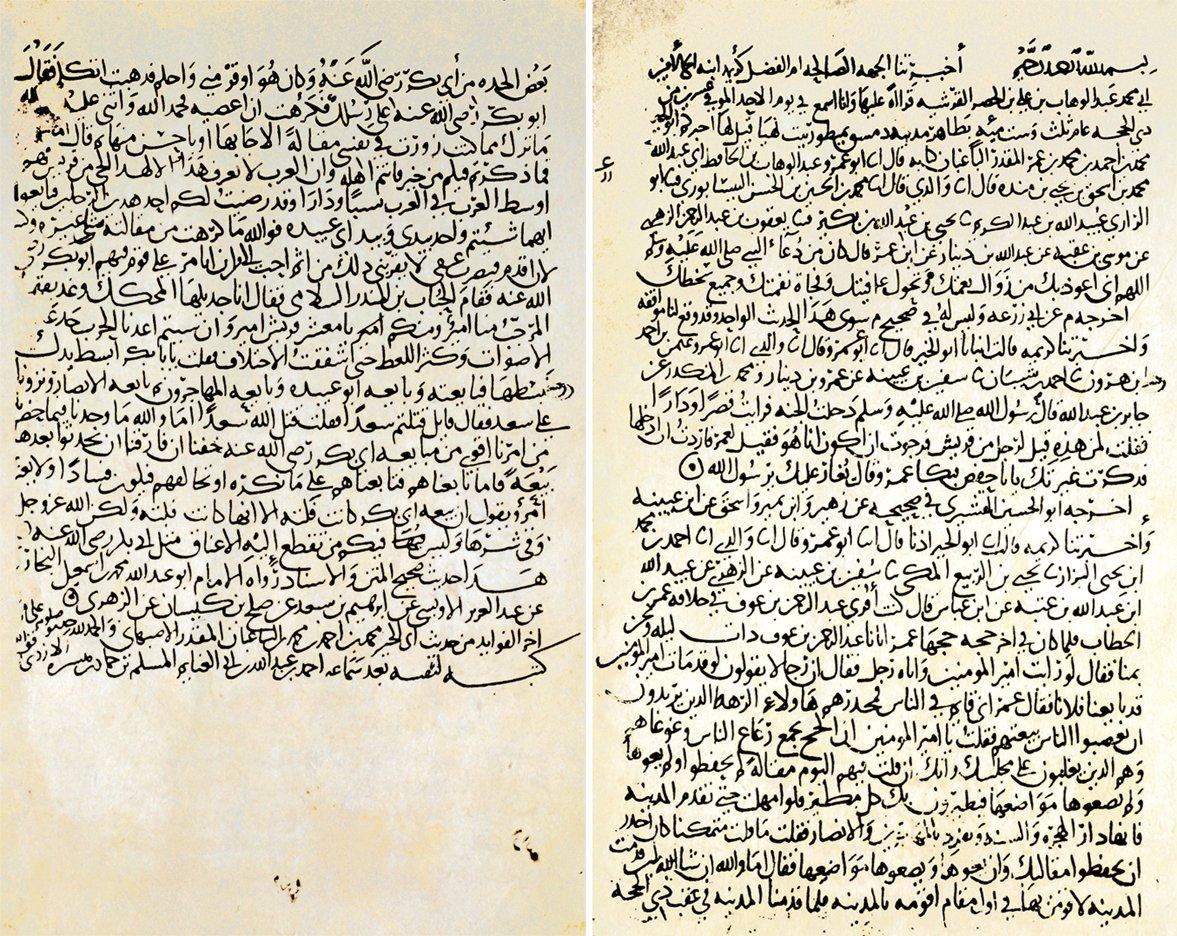 بسم الله الرحمن الرحيم أخبرتنا الجهة الصالحة ام الفضل كريمة ابنة
ابي محمد عبد الوهاب بن علي بن الخضر القرشيه قراة عليها وانا اسمع في يوم الاحد الموفي عشرين من
ذي الحجه عام ثلث وست مئه بظاهر مدينه دمسق
محمد بن احمد بن محمد بن عمر المقدر الباغبان قال انا ابو عمرو عبد الوهاب بن الحافظ ابي عبد الله
محمد بن اسحق بن يحيى بن منده قال انا والدي قال انا محمد بن الحسين بن الحسن النيسابوري ثنا ابو
الرازي عبيد الله بن عبد الكريم ثنا يحيى بن عبد الله بن بكير ثنا يعقوب بن عبد الرحمن الزهري
عن موسى بن عقبه عن عبد الله بن دينار عن ابن عمر قال كان من دعاء النبي صلى الله عليه وسلم
اللهم اني اعوذ بك من زوال نعمتك وتحول عافيتك وفجاة نقمتك وجميع سخطك
اخرجه م عن ابي زرعه وليس له في صحيح م سوى هذا الحديث الواحد وقد وقع لنا موافقه
واخبرتنا كريمه قالت انبانا ابو الخير قال انا ابو عمرو قال انا والدي انا
بن هرون ثنا احمد بن شيبان ثنا سفين بن عيينه عن عمرو بن دينار ومحمد بن المنكدر عن
جابر بن عبد الله قال رسول الله صلى الله عليه وسلم دخلت الجنه فرايت قصرا او دارا
فقلت لمن هذه قيل لرجل من قريش فرجوت ان اكون انا هو فقيل لعمر فاردت ان ادخلها
فذكرت غيرتك يا با حفص فبكا عمر وقال يغار عليك يرسول الله
اخرجه ابو الحسين القشيري في صحيحه عن زهير وابن نمير واسحق عن ابن عيينه
وأخبرتنا كريمه قالت انا ابو الخير اذنا قال انا ابو عمرو قال انا والدي انا احمد بن محمد
ابن يحيى البزاز ثنا يحيى بن الربيع المكي ثنا سفين بن عيينه عن الزهري عن عبيد الله
ابن عبد الله بن عتبه عن ابن عباس قال كنت أقري عبد الرحمن بن عوف في خلافه عمر بن
الخطاب فلما كان في اخر حجه حجها عمر اتانا عبد الرحمن بن عوف ذات ليله ونحن
بمنا فقال لو رايت امير المومنين واتاه رجل فقال ان رجلا يقولون لو قد مات امير المومنين
قد بايعنا فلانا فقال عمر اني قايم في الناس فمحذرهم هاولاء الرهط الذين يريدون
ان يغصبوا الناس بيعتهم فقلت يا امير المومنين ان الحج يجمع رعاع الناس وغوغاهم
وهم الذين يغلبون على مجلسك وانك ان قلت فيهم اليوم مقالة لم يحفظوا ولم يعوها
ولم يضعوها مواضعها فيطيرون بك كل مطير فلو امهلت حتى تقدم المدينه
فانها دار الهجره والسنه وتفرد بالمهاجرين والانصار فقلت ما قلت متمكنا كان اجدر
ان يحفظوا مقالتك وان يعوها ويضعوها مواضعها فقال اما والله ان شا الله لئن قدمت
المدينه لاقومن بها في اول مقام اقومه بالمدينه فلما قدمنا المدينه في عقب ذي الحجه
بعض الحده من أبي بكر رضي الله عنه وكان هو اوقر مني واحلم فذهبت اتكلم فقال
ابو بكر رضي الله عنه على رسلك فكرهت ان اعصيه فحمد الله واثنى عليه
ما ترك مما كنت زورت في نفسي مقالة الا جا بها او باحسن منها قال
فما ذكرتم فيكم من خير فانتم اهله وان العرب لا تعرف هذا الا لهذا الحي من قريش هم
اوسط العرب في العرب نسبا ودارا وقد رضيت لكم احد هذين الرجلين فبايعوا
ايهما شئتم واخذ بيدي وبيد ابي عبيده فوالله ما كرهت من مقالته شي غيره
لان اقدم فيضرب عنقي لا يقربني ذلك من اثم احب الي من ان اتامر على قوم فيهم ابو بكر رضي
الله عنه فقام الحباب بن المنذر السلمي فقال انا جذيلها المحكك وعذيقها
المرجب منا امير ومنكم امير يا معشر قريش امير وان شيتم اعدنا الحرب جذعه
الاصوات وكثر اللغط حتى اشفقت الاختلاف فقلت يا با بكر ابسط يدك
فبسطها فبايعته وبايعه ابو عبيده وبايعه المهاجرون ثم بايعه الانصار ونزونا
على سعد فقال قايل قتلتم سعدا فقلت قتل الله سعدا اما والله ما وجدنا فيما حضر
من امرنا اقوى من مبايعه ابي بكر رضي الله عنه خفنا ان فارقنا ان يحدثوا بعدها
بيعة فاما نبايعهم على ما نكره او نخالفهم فيكون فسادا
امرؤ يقول ان بيعه ابي بكر كانت فلته الا انها كانت فلته ولكن الله عز وجل
وقى شرها وليس فيكم من تقطع اليه الاعناق مثل ابي بكر رضي الله عنه
هذا حديث صحيح المتن والاسناد رواه الامام ابو عبد الله محمد بن اسمعيل البخاري
عن عبد العزيز الاويسي عن ابراهيم بن سعد عن صلح بن كيسان عن الزهري
اخر الفوايد من حديث ابي الخير محمد بن احمد بن محمد بن الباغبان المقدر الاصبهاني والحمد لله
كتبه لنفسه بعد سماعه احمد بن عبد الله بن ابي الغنايم المسلم بن حماد بن ميسره الازدي